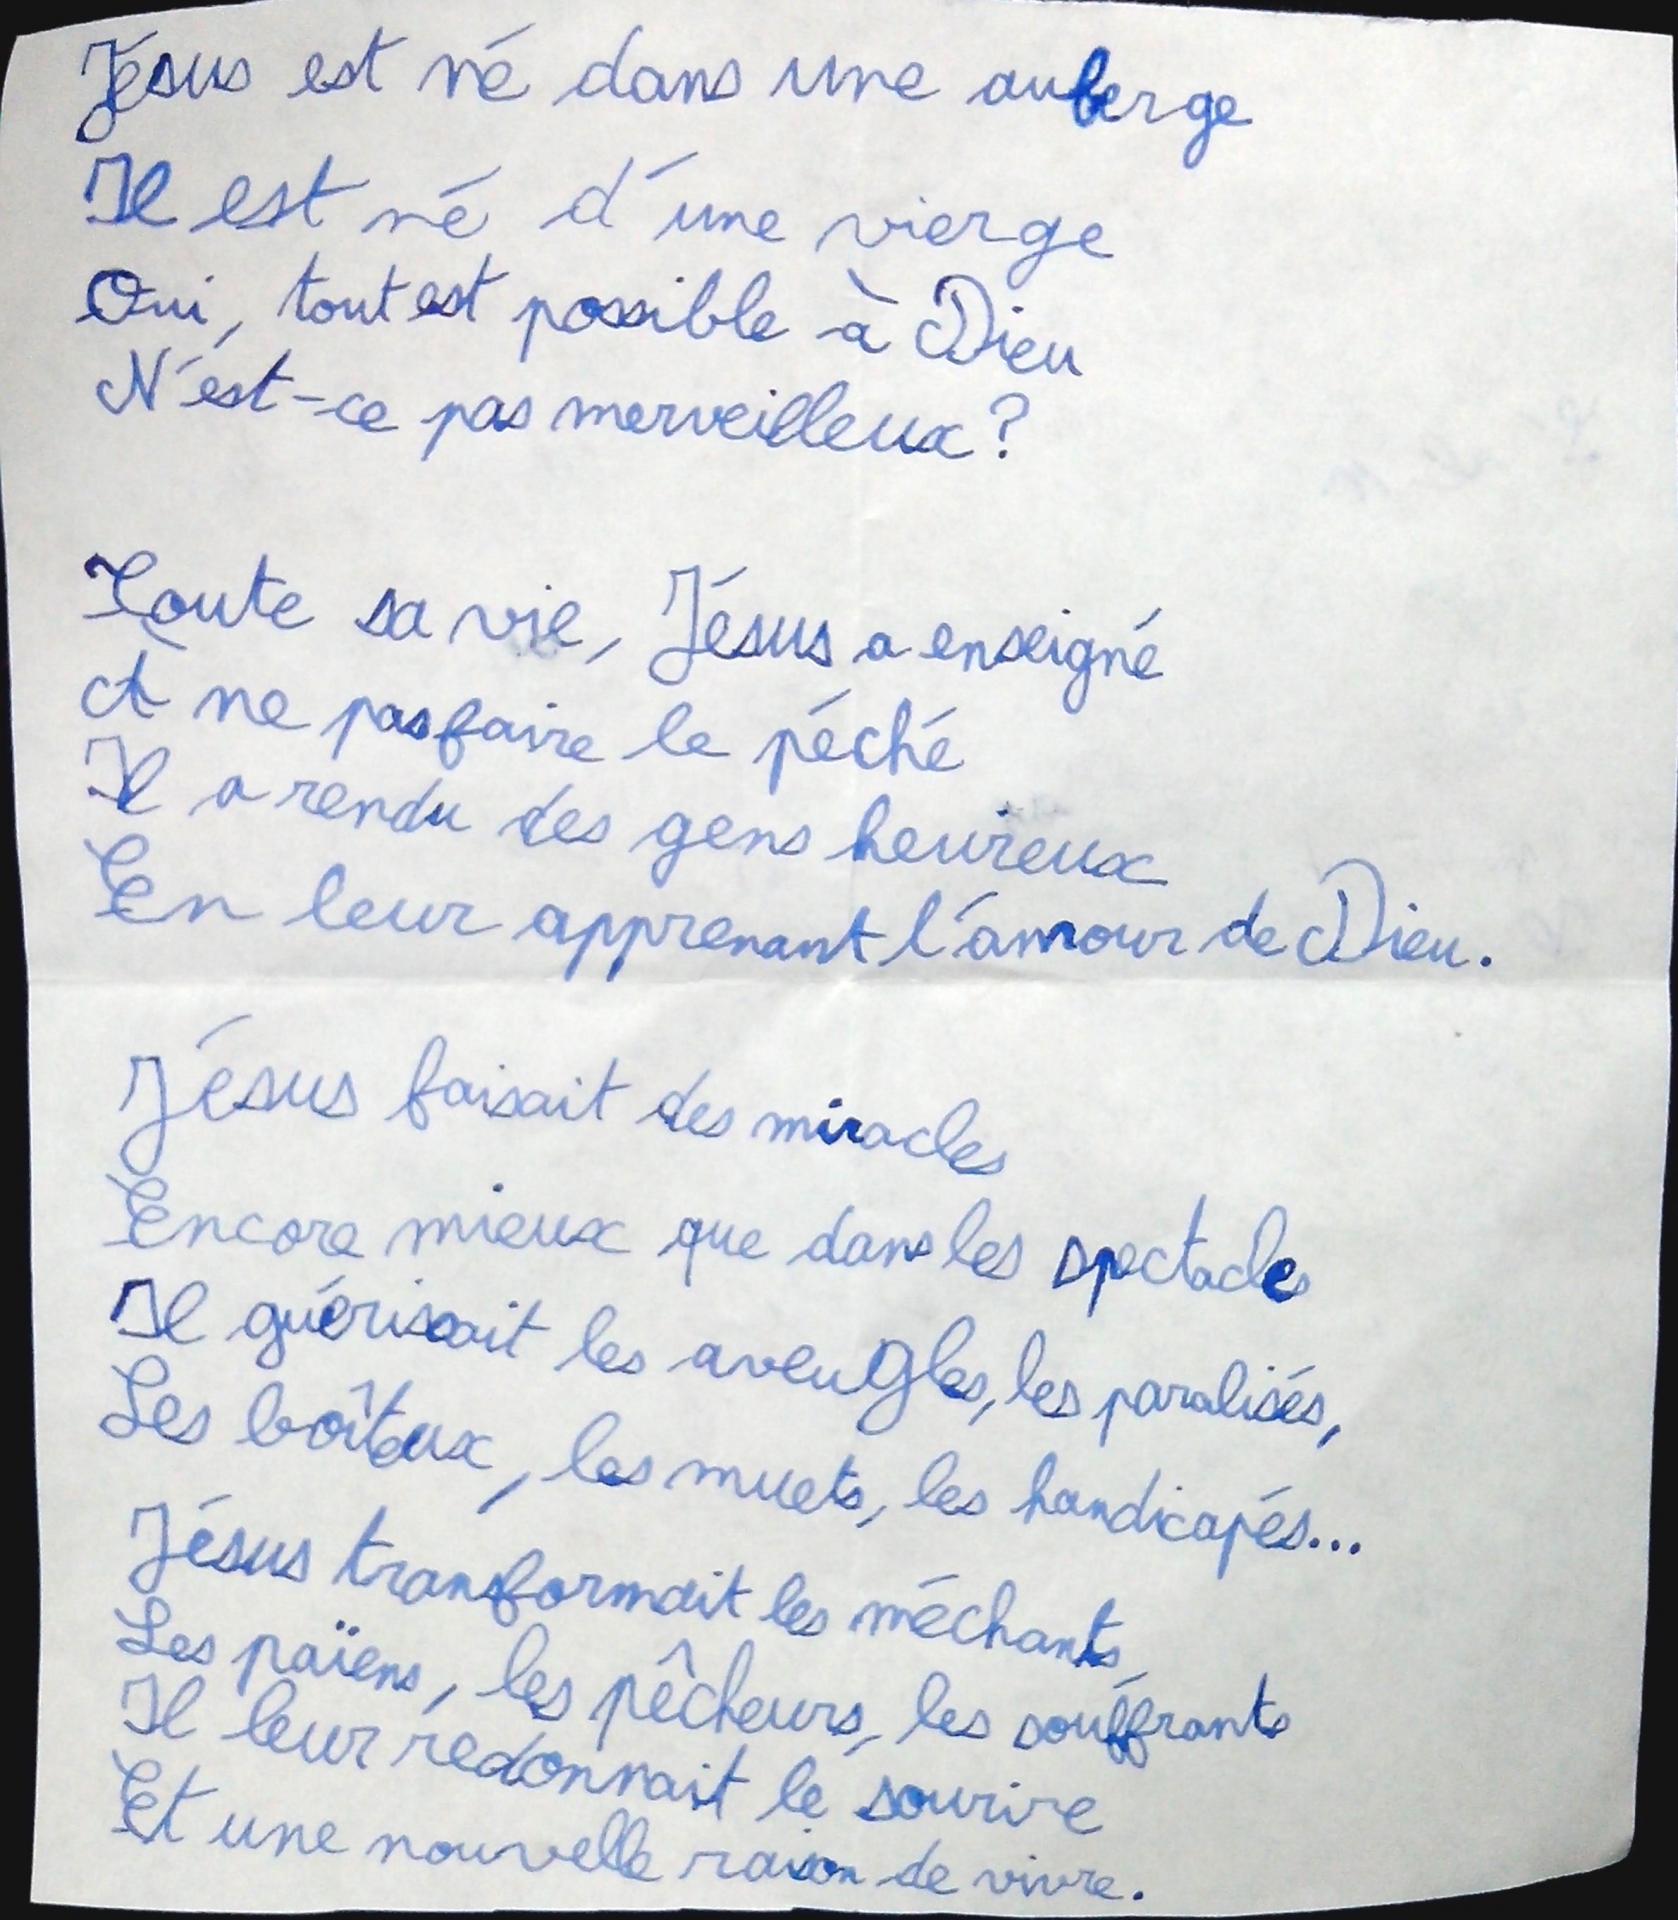 Jésus est né dans une auberge
Il est né d'une vierge
Oui, tout est possible à Dieu
N'est-ce pas merveilleux ?
Toute sa vie, Jésus a enseigné
À ne pas faire le péché
Il a rendu des gens heureux
En leur apprenant l'amour de Dieu.
Jésus faisait des miracles
Encore mieux que dans les spectacles
Il guérissait les aveugles, les paralisés,
Les boîteux, les muets, les handicapés...
Jésus transformait les méchants,
Les païens, les pêcheurs, les souffrants
Il leur redonnait le sourire
Et une nouvelle raison de vivre.